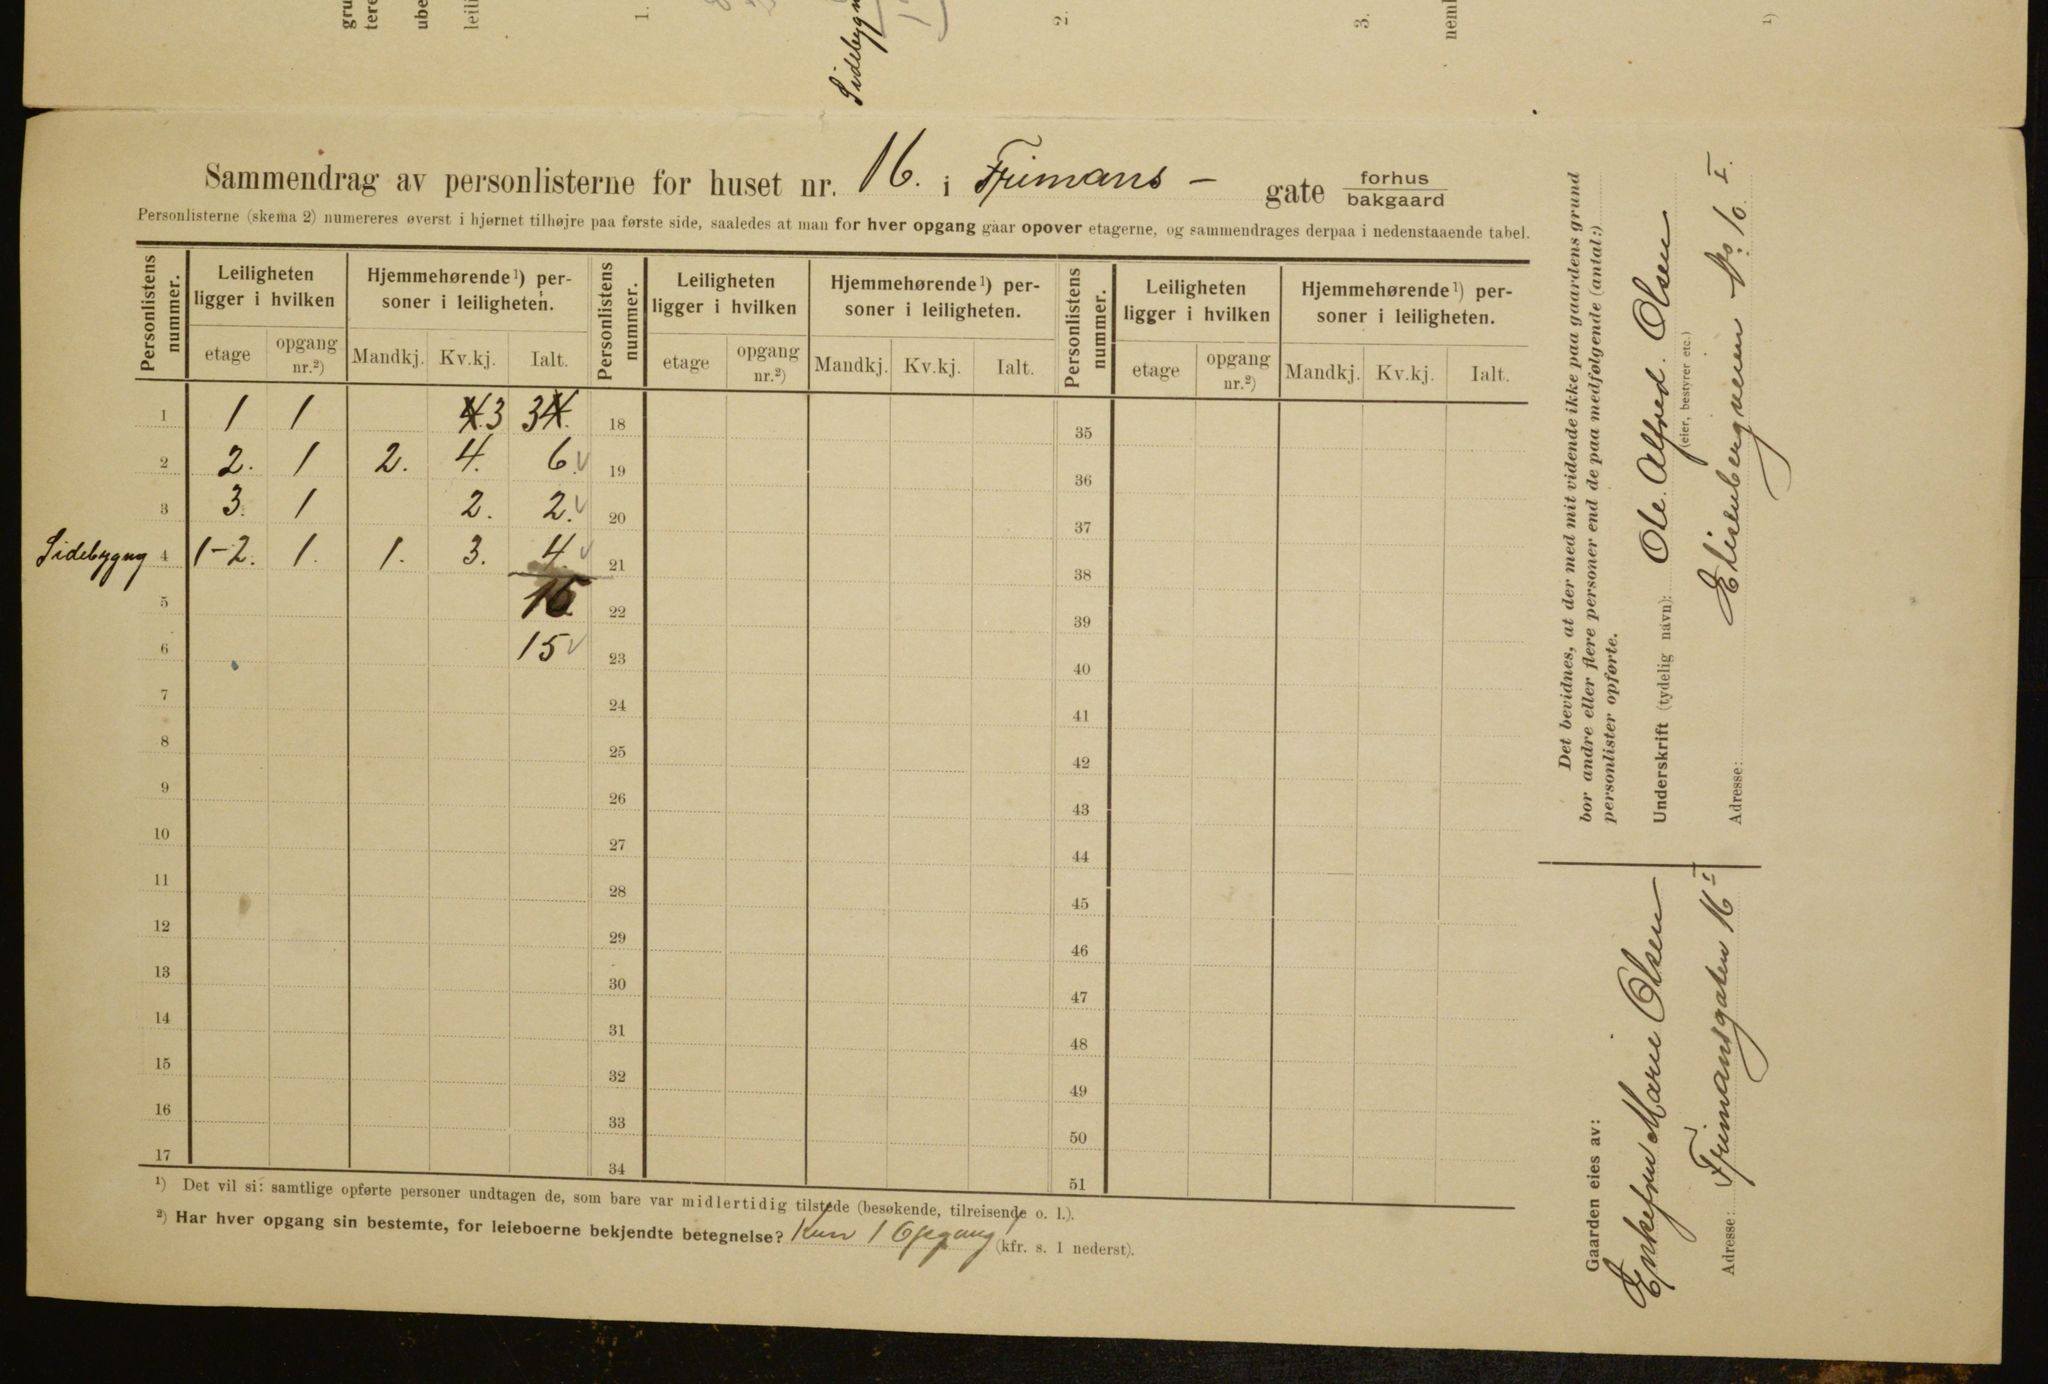 gru
tere
ube
leili
1.
Sidebygn
2.
3.
neml
1)
Sammendrag av personlisterne for huset nr. 16. i Frimans - gate forhus
bakgaard
Personlisterne (skema 2) numereres øverst i hjørnet tilhøjre paa første side, saaledes at man for hver opgang gaar opover etagerne, og sammendrages derpaa i nedenstaaende tabel.
Personlistens nummer. Leiligheten ligger i hvilken Hjemmehørende¹) personer i leiligheten. Personlistens nummer. Leiligheten ligger i hvilken Hjemmehørende¹) personer i leiligheten. Personlistens nummer. Leiligheten ligger i hvilken Hjemmehørende¹) personer i leiligheten.
etage opgang nr.²) Mandkj. Kv.kj. Ialt. etage opgang nr.²) Mandkj. Kv.kj. Ialt. etage opgang nr.²) Mandkj. Kv.kj. Ialt.
1 1 1 4. 3 3 4. 18 35
2 2. 1 2. 4. 6. 19 36
3 3. 1 2. 2. 20 37
Sidebygng 4 1-2. 1. 1. 3. 4. 21 38
5 16. 22 39
6 15 23 40
7 24 41
8 25 42
9 26 43
10 27 44
11 28 45
12 29 46
13 30 47
14 31 48
15 32 49
16 33 50
17 34 51
¹) Det vil si: samtlige opførte personer undtagen de, som bare var midlertidig tilstede (besøkende, tilreisende o. l.).
²) Har hver opgang sin bestemte, for leieboerne bekjendte betegnelse? Kun 1 Opgang (kfr. s. 1 nederst).
Det bevidnes, at der med mit vidende ikke paa gaardens grund
bor andre eller flere personer end de paa medfølgende (antal:)
personlister opførte.
Underskrift (tydelig navn): Ole Alfred. Olsen
(eier, bestyrer etc.)
Adresse: Elisenbergveien No. 10. I.
Gaarden eies av:
Enkefru Marie Olsen
Adresse: Frimansgaten 16 I